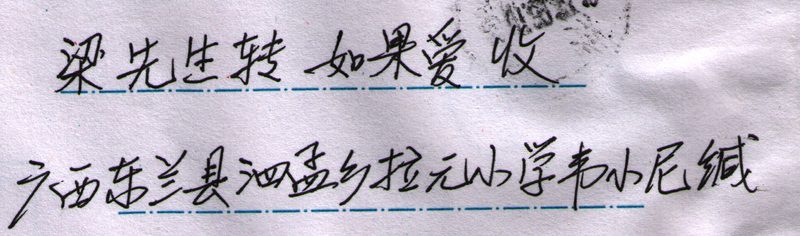 梁先生转 如果爱 收
广西东兰县泗孟乡拉元小学韦小尼缄